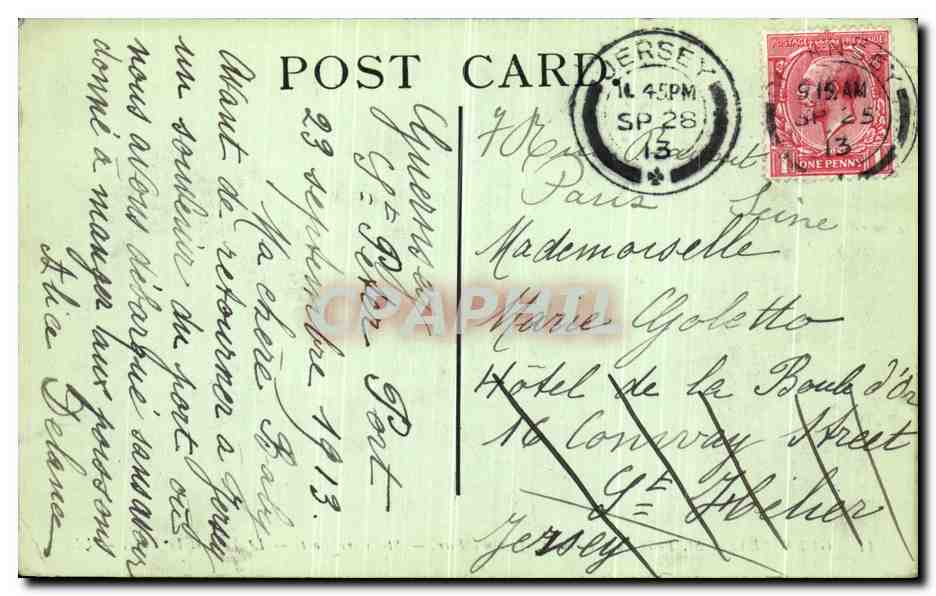 POST CARD
Guernsey
St Peter Port
23 septembre 1913.
Ma chère Baby
Avant de retourner à Jersey
un souvenir du port où
nous avons débarqué sans avoir
donné à manger aux poissons
Alice Delance
JERSEY
11 45PM
SP 28
13
9 15 AM
SP 25
13
POSTAGE REVENUE
ONE PENNY
7 Rue
Paris Seine
Mademoiselle
Marie Goletto
Hôtel de la Boule d'Or
16 Conway Street
St Hélier
Jersey
CPAPHIL